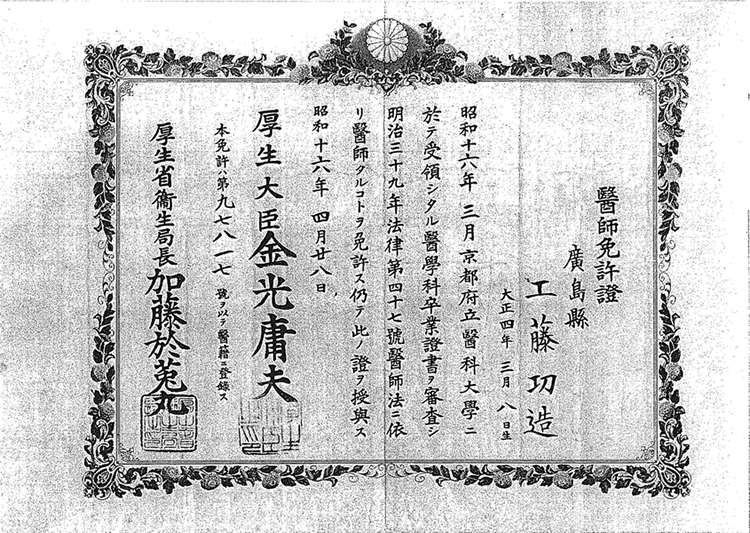 醫師免許證
廣島縣
工藤功造
大正四年三月八日生
昭和十六年三月京都府立醫科大學ニ
於テ受領シタル醫學科卒業證書ヲ審査シ
明治三十九年法律第四十七號醫師法ニ依
リ醫師タルコトヲ免許ス仍テ此ノ證ヲ授與ス
昭和十六年四月廿八日
厚生大臣金光庸夫
本免許ハ第九七八一七號ヲ以テ醫籍ニ登錄ス
厚生省衞生局長加藤於菟丸